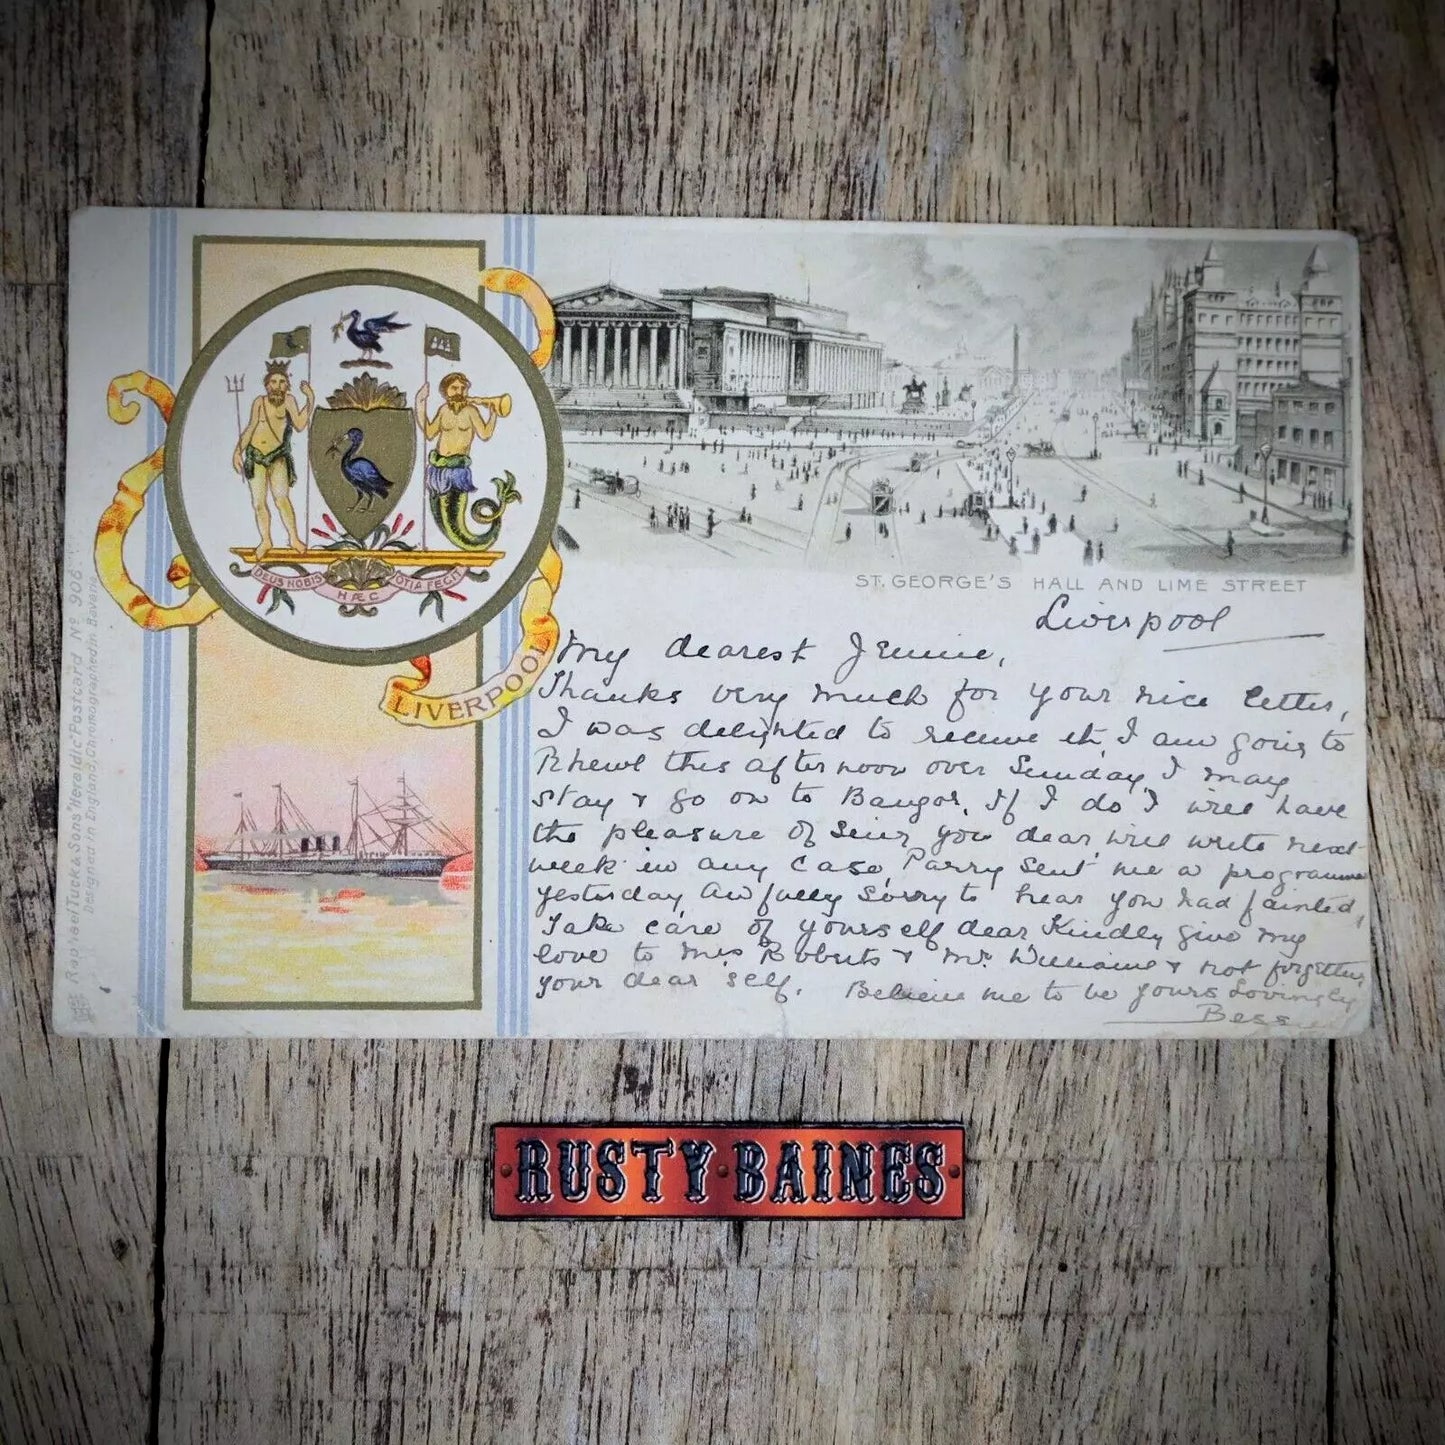 DEUS NOBIS HÆC OTIA FECIT
LIVERPOOL
Raphael Tuck & Sons' "Heraldic" Postcard Nº 906
Designed in England, Chromographed in Bavaria
ST. GEORGE'S HALL AND LIME STREET
Liverpool
My dearest Jennie,
Thanks very much for your nice letter,
I was delighted to receive it, I am going to
Rhewl this afternoon over Sunday, I may
stay & go on to Bangor, If I do I will have
the pleasure of seing you dear will write next
week in any case, Parry sent me a programme
yesterday, awfully sorry to hear you had fainted,
Take care of yourself dear Kindly give my
love to Mrs Roberts & Mr. Williams & not forgetting
your dear self. Believe me to be yours Lovingly
Bess
RUSTY BAINES